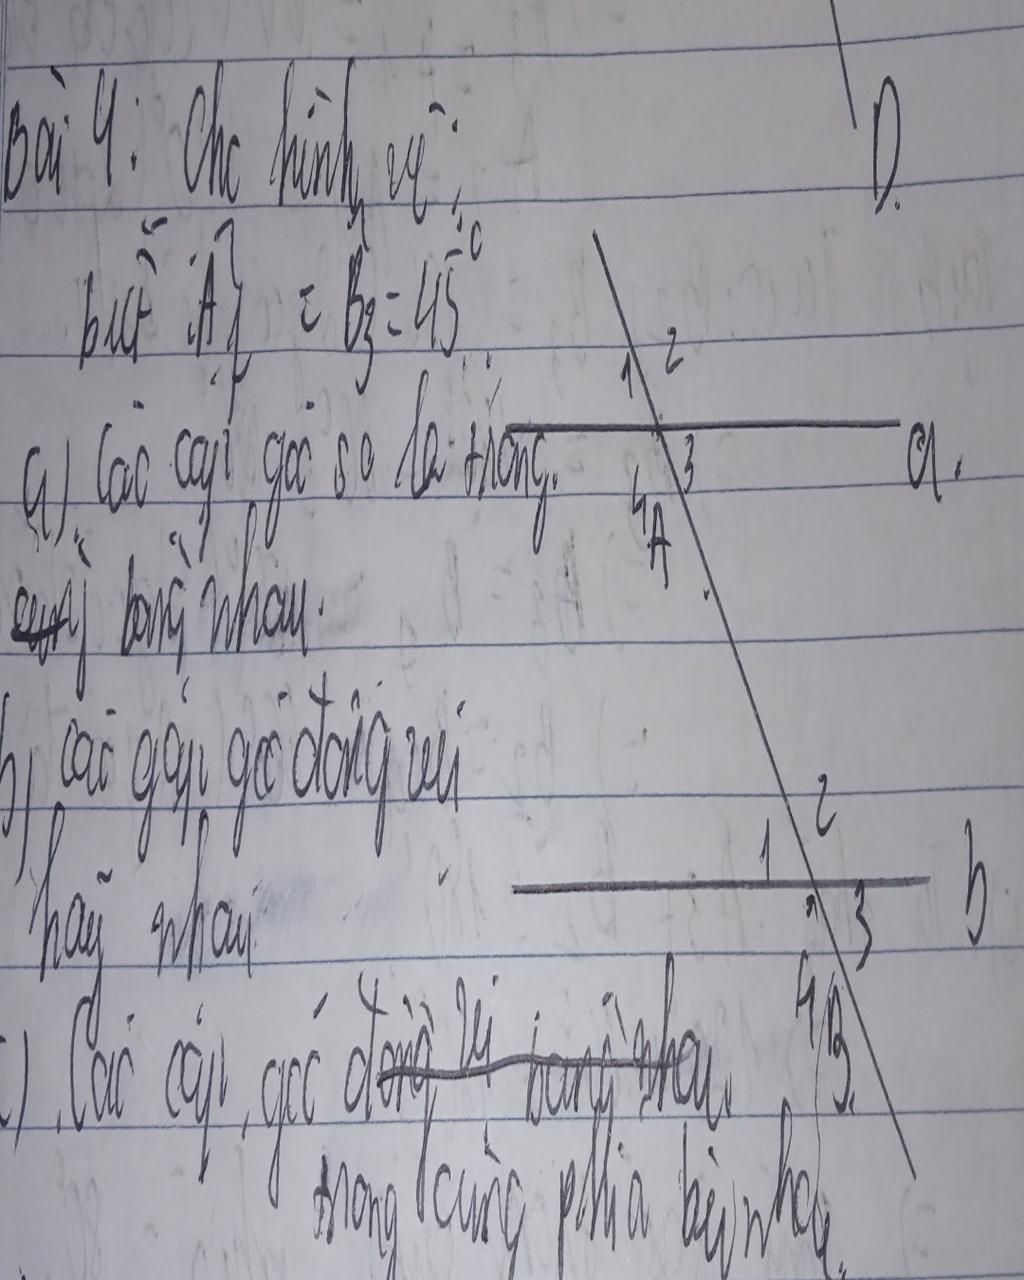 D.
Bài 4: Cho hình vẽ:
= B3 = 45°
1 2
a) Các cặp góc so le trong
a.
4 3
A
bằng nhau.
b) các gặp góc đồng vị
2
1
b
nhau
3
4 B.
c) Các cặp góc đồng vị bằng nhau.
trong cùng phía bù nhau.